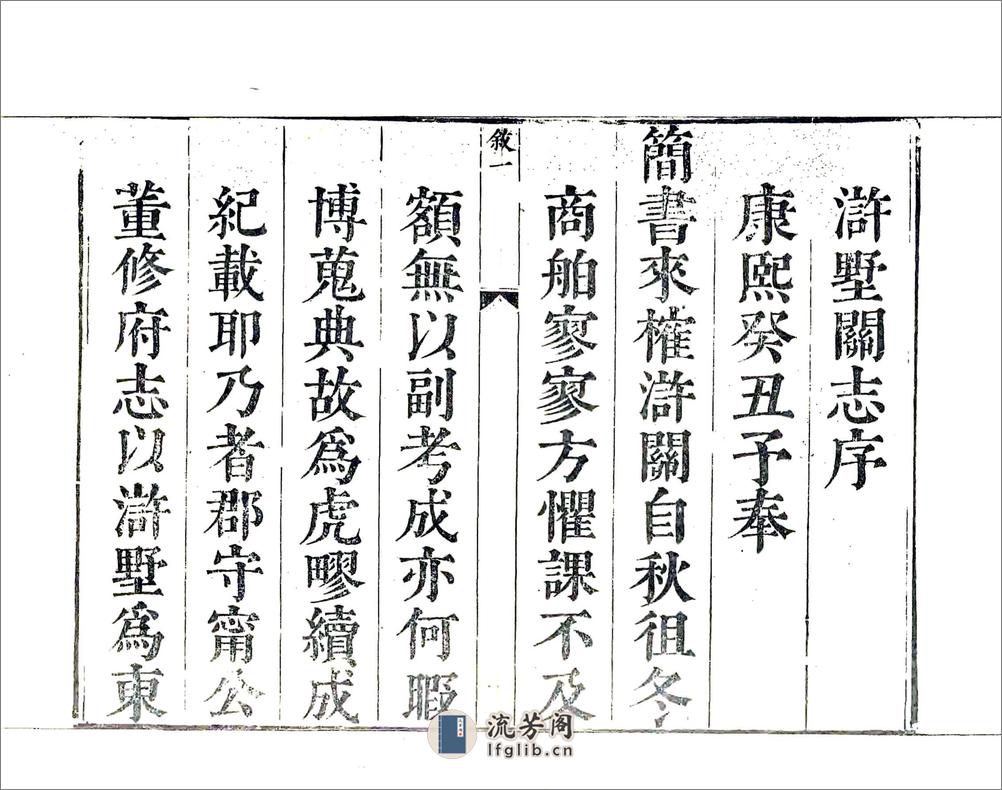 滸墅關志序
康熙癸丑予奉
簡書來榷滸關自秋徂冬
商舶寥寥方懼課不及
敘一
額無以副考成亦何暇
博蒐典故爲虎疁續成
紀載耶乃者郡守甯公
董修府志以滸墅爲東
流芳阁
lfglib.cn